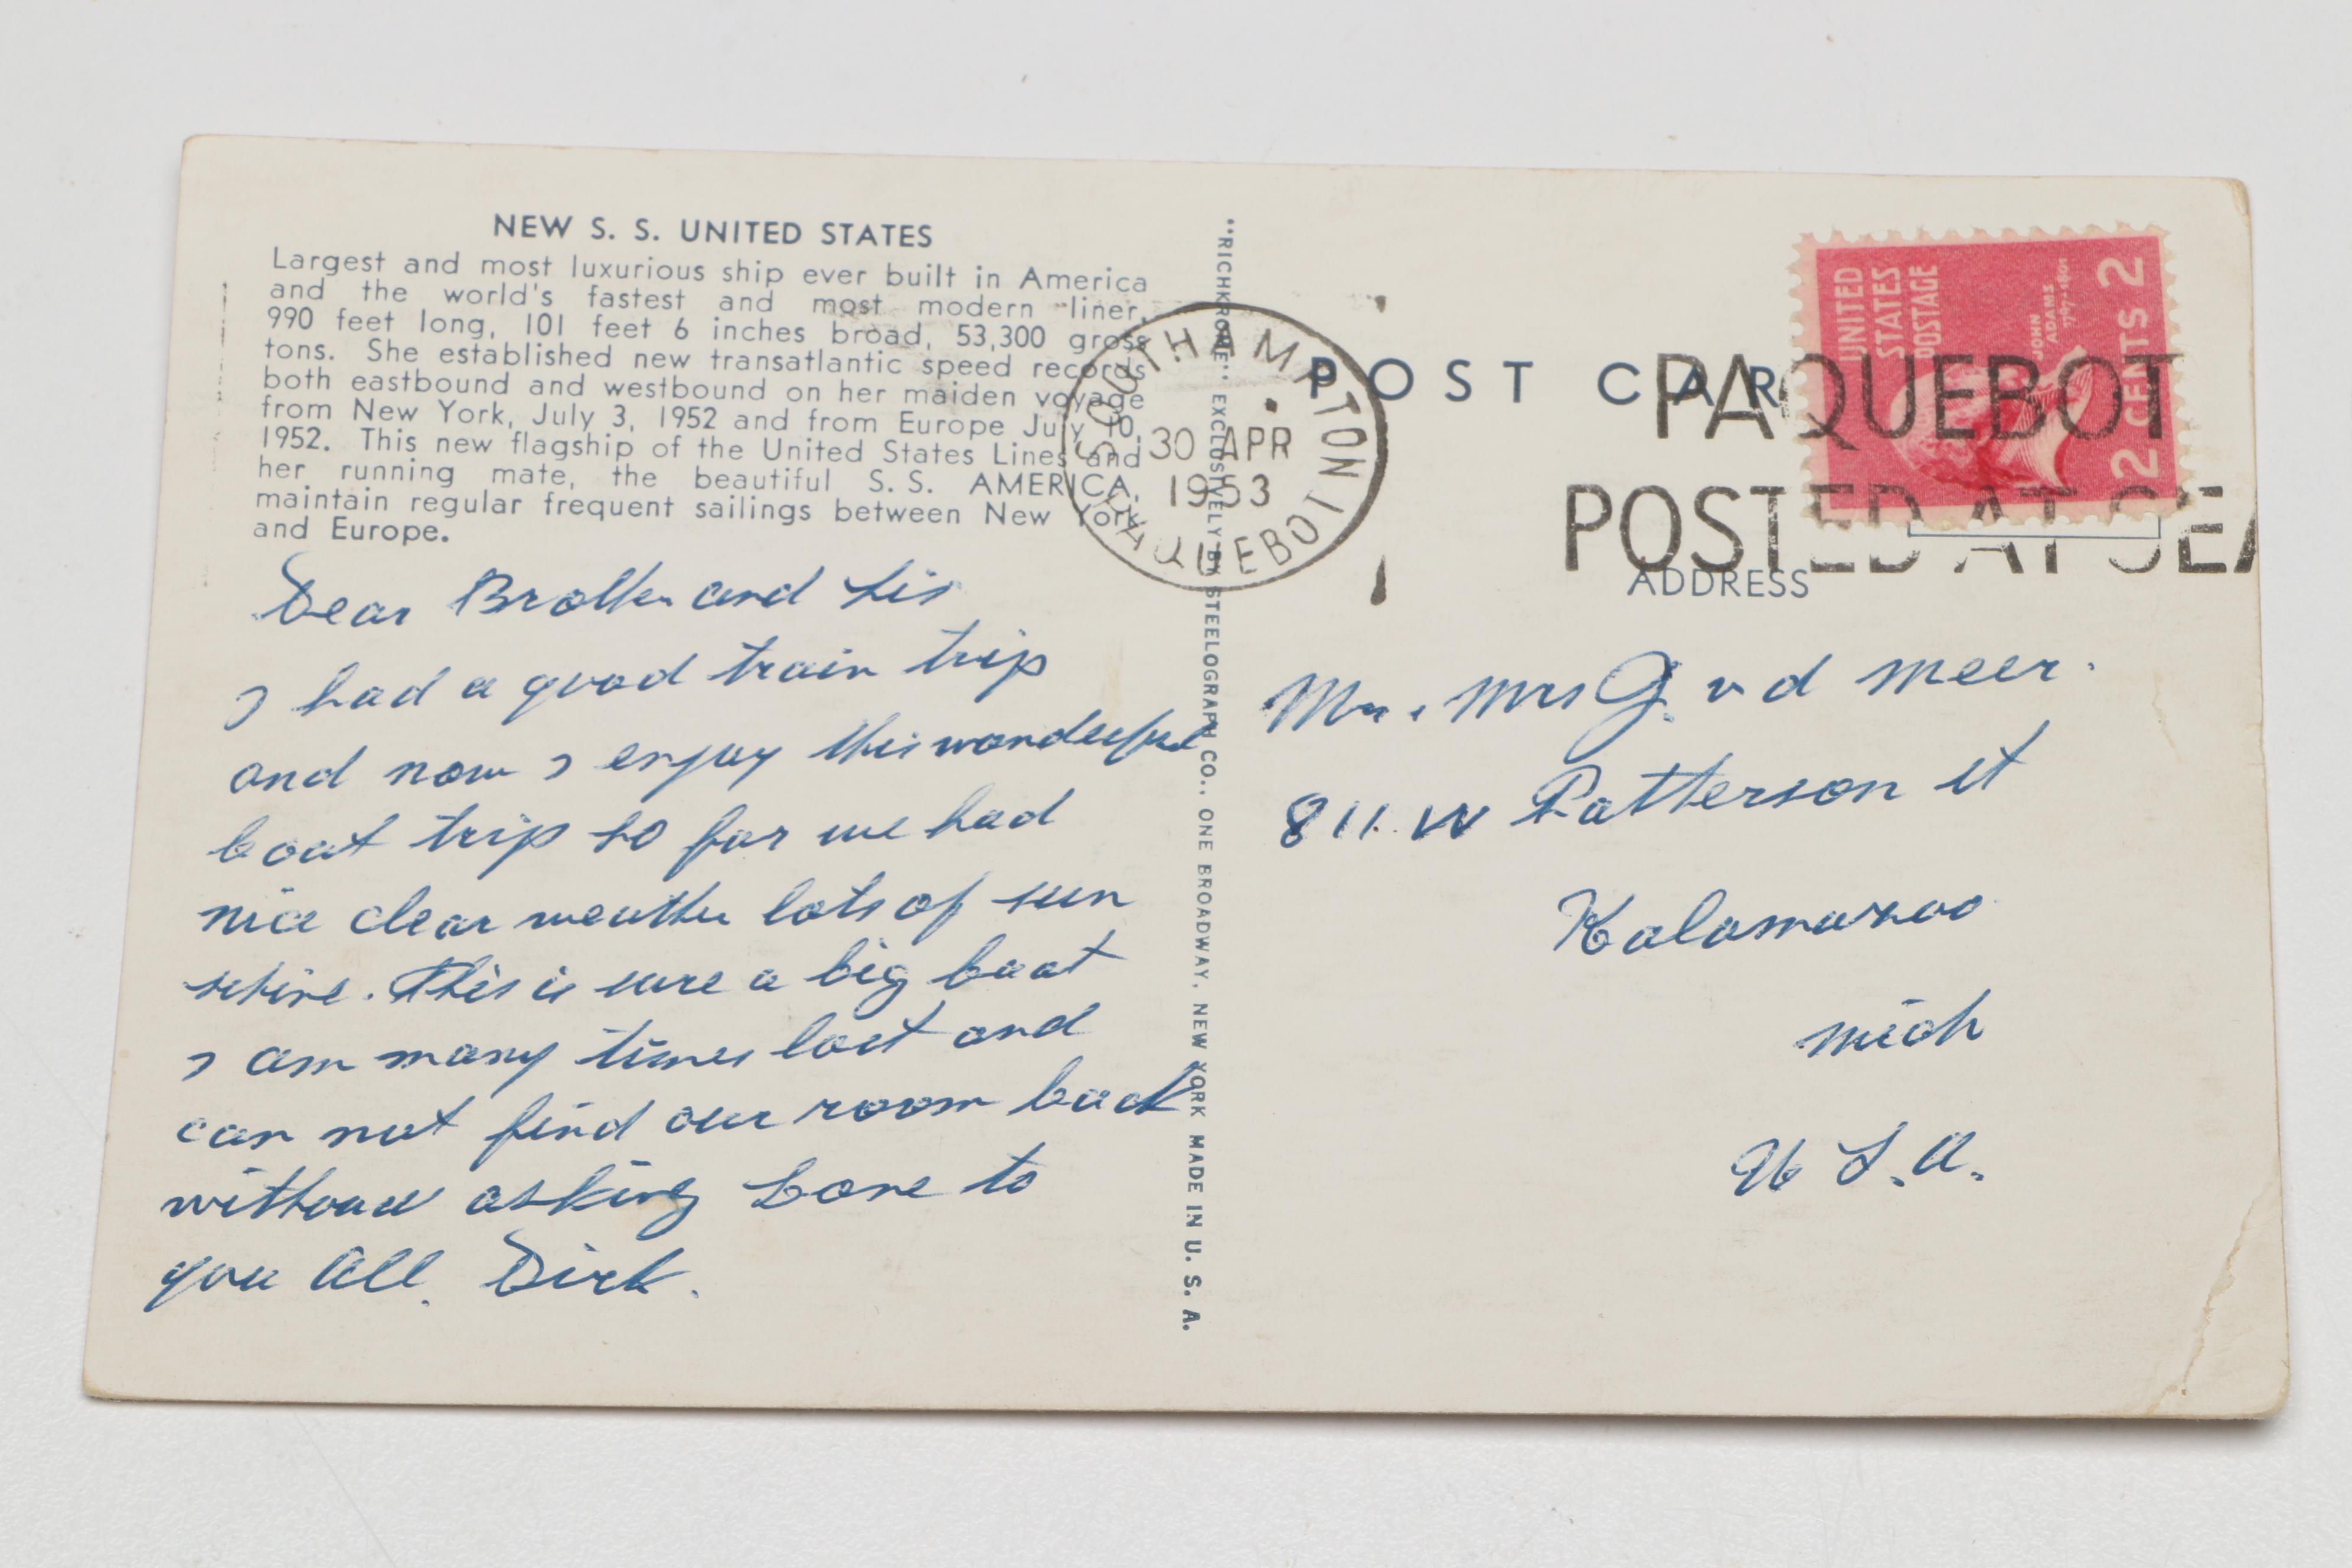 NEW S. S. UNITED STATES
Largest and most luxurious ship ever built in America
and the world's fastest and most modern liner,
990 feet long, 101 feet 6 inches broad, 53,300 gross
tons. She established new transatlantic speed records
both eastbound and westbound on her maiden voyage
from New York, July 3, 1952 and from Europe July 10,
1952. This new flagship of the United States Lines and
her running mate, the beautiful S. S. AMERICA,
maintain regular frequent sailings between New York
and Europe.
Dear Brother and Sis
I had a good train trip
and now I enjoy this wonderful
boat trip so far we had
nice clear weather lots of sun
shine. This is sure a big boat
I am many times lost and
can not find our room back
without asking Love to
you All. Dirk.
"RICHKROME" EXCLUSIVELY BY STEELOGRAPH CO., ONE BROADWAY, NEW YORK MADE IN U. S. A.
SOUTHAMPTON
30 APR
1953
PAQUEBOT
POST CAR
UNITED
STATES
POSTAGE
JOHN
ADAMS
1797-1801
2 CENTS 2
PAQUEBOT
POSTED AT SEA
ADDRESS
Mr. Mrs G v d Meer.
811. W Patterson st
Kalamazoo
Mich
U S. A.